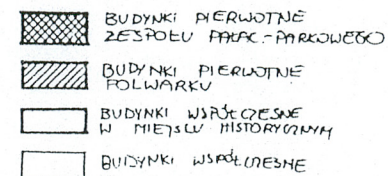 BUDYNKI PIERWOTNE
ZESPOŁU PAŁAC.-PARKOWEGO
BUDYNKI PIERWOTNE
FOLWARKU
BUDYNKI WSPÓŁCZESNE
W MIEJSCU HISTORYCZNYM
BUDYNKI WSPÓŁCZESNE